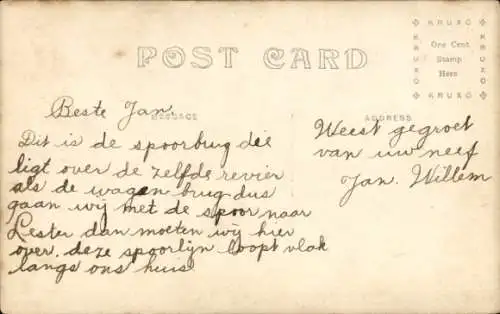 POST CARD
KRUXO
KRUXO
KRUXO
One Cent
Stamp
Here
KRUXO
MESSAGE
ADDRESS
Beste Jan
Dit is de spoorbrug die
ligt over de zelfde revier
als de wagen brug dus
gaan wij met de spoor naar
Lester dan moeten wij hier
over. deze spoorlijn loopt vlak
langs ons huis
Weest gegroet
van uw neef
Jan. Willem